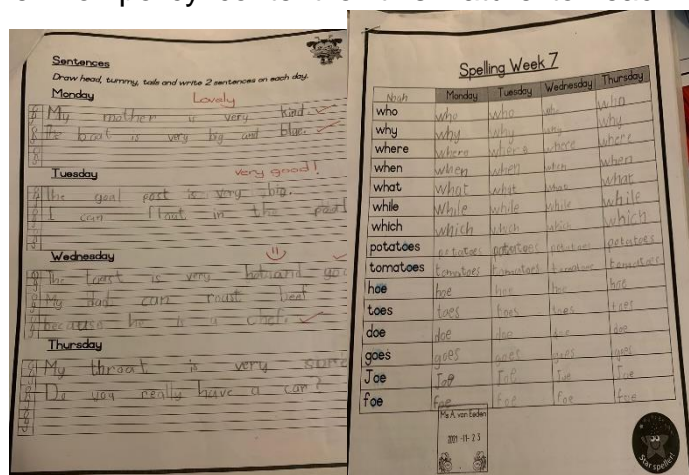 Sentences
Draw head, tummy, tails and write 2 sentences on each day.
Monday
Lovely
My mother is very kind.
The boat is very big and blue.
Tuesday
very good!
The goal post is very big.
I can float in the pool
Wednesday
The toast is very hot and
My dad can roast beef
because he is a chef.
Thursday
My throat is very sore
Do you really have a car?
Spelling Week 7
Noah Monday Tuesday Wednesday Thursday
who who who who who
why why why why why
where where where where where
when when when when when
what what what what what
while while while while while
which which which which which
potatoes potatoes potatoes potatoes potatoes
tomatoes tomatoes tomatoes tomatoes tomatoes
hoe hoe hoe hoe hoe
toes toes toes toes toes
doe doe doe doe doe
goes goes goes goes goes
Joe Joe Joe Joe Joe
foe foe foe foe foe
Ms A. van Eeden
2021 -11- 23
Star speller!